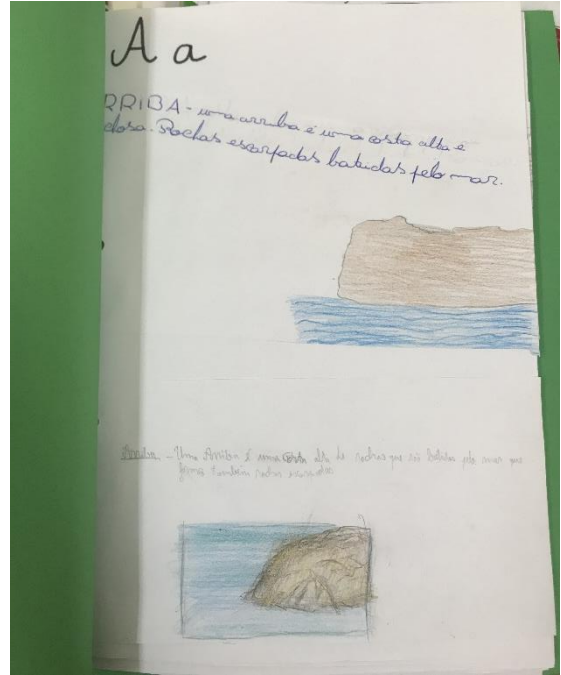 A a
RRIBA - uma arriba é uma costa alta e
dosa. Rochas escarpadas batidas pelo mar.
Arriba - Uma Arriba é uma costa alta de rochas que são batidas pelo mar que
também